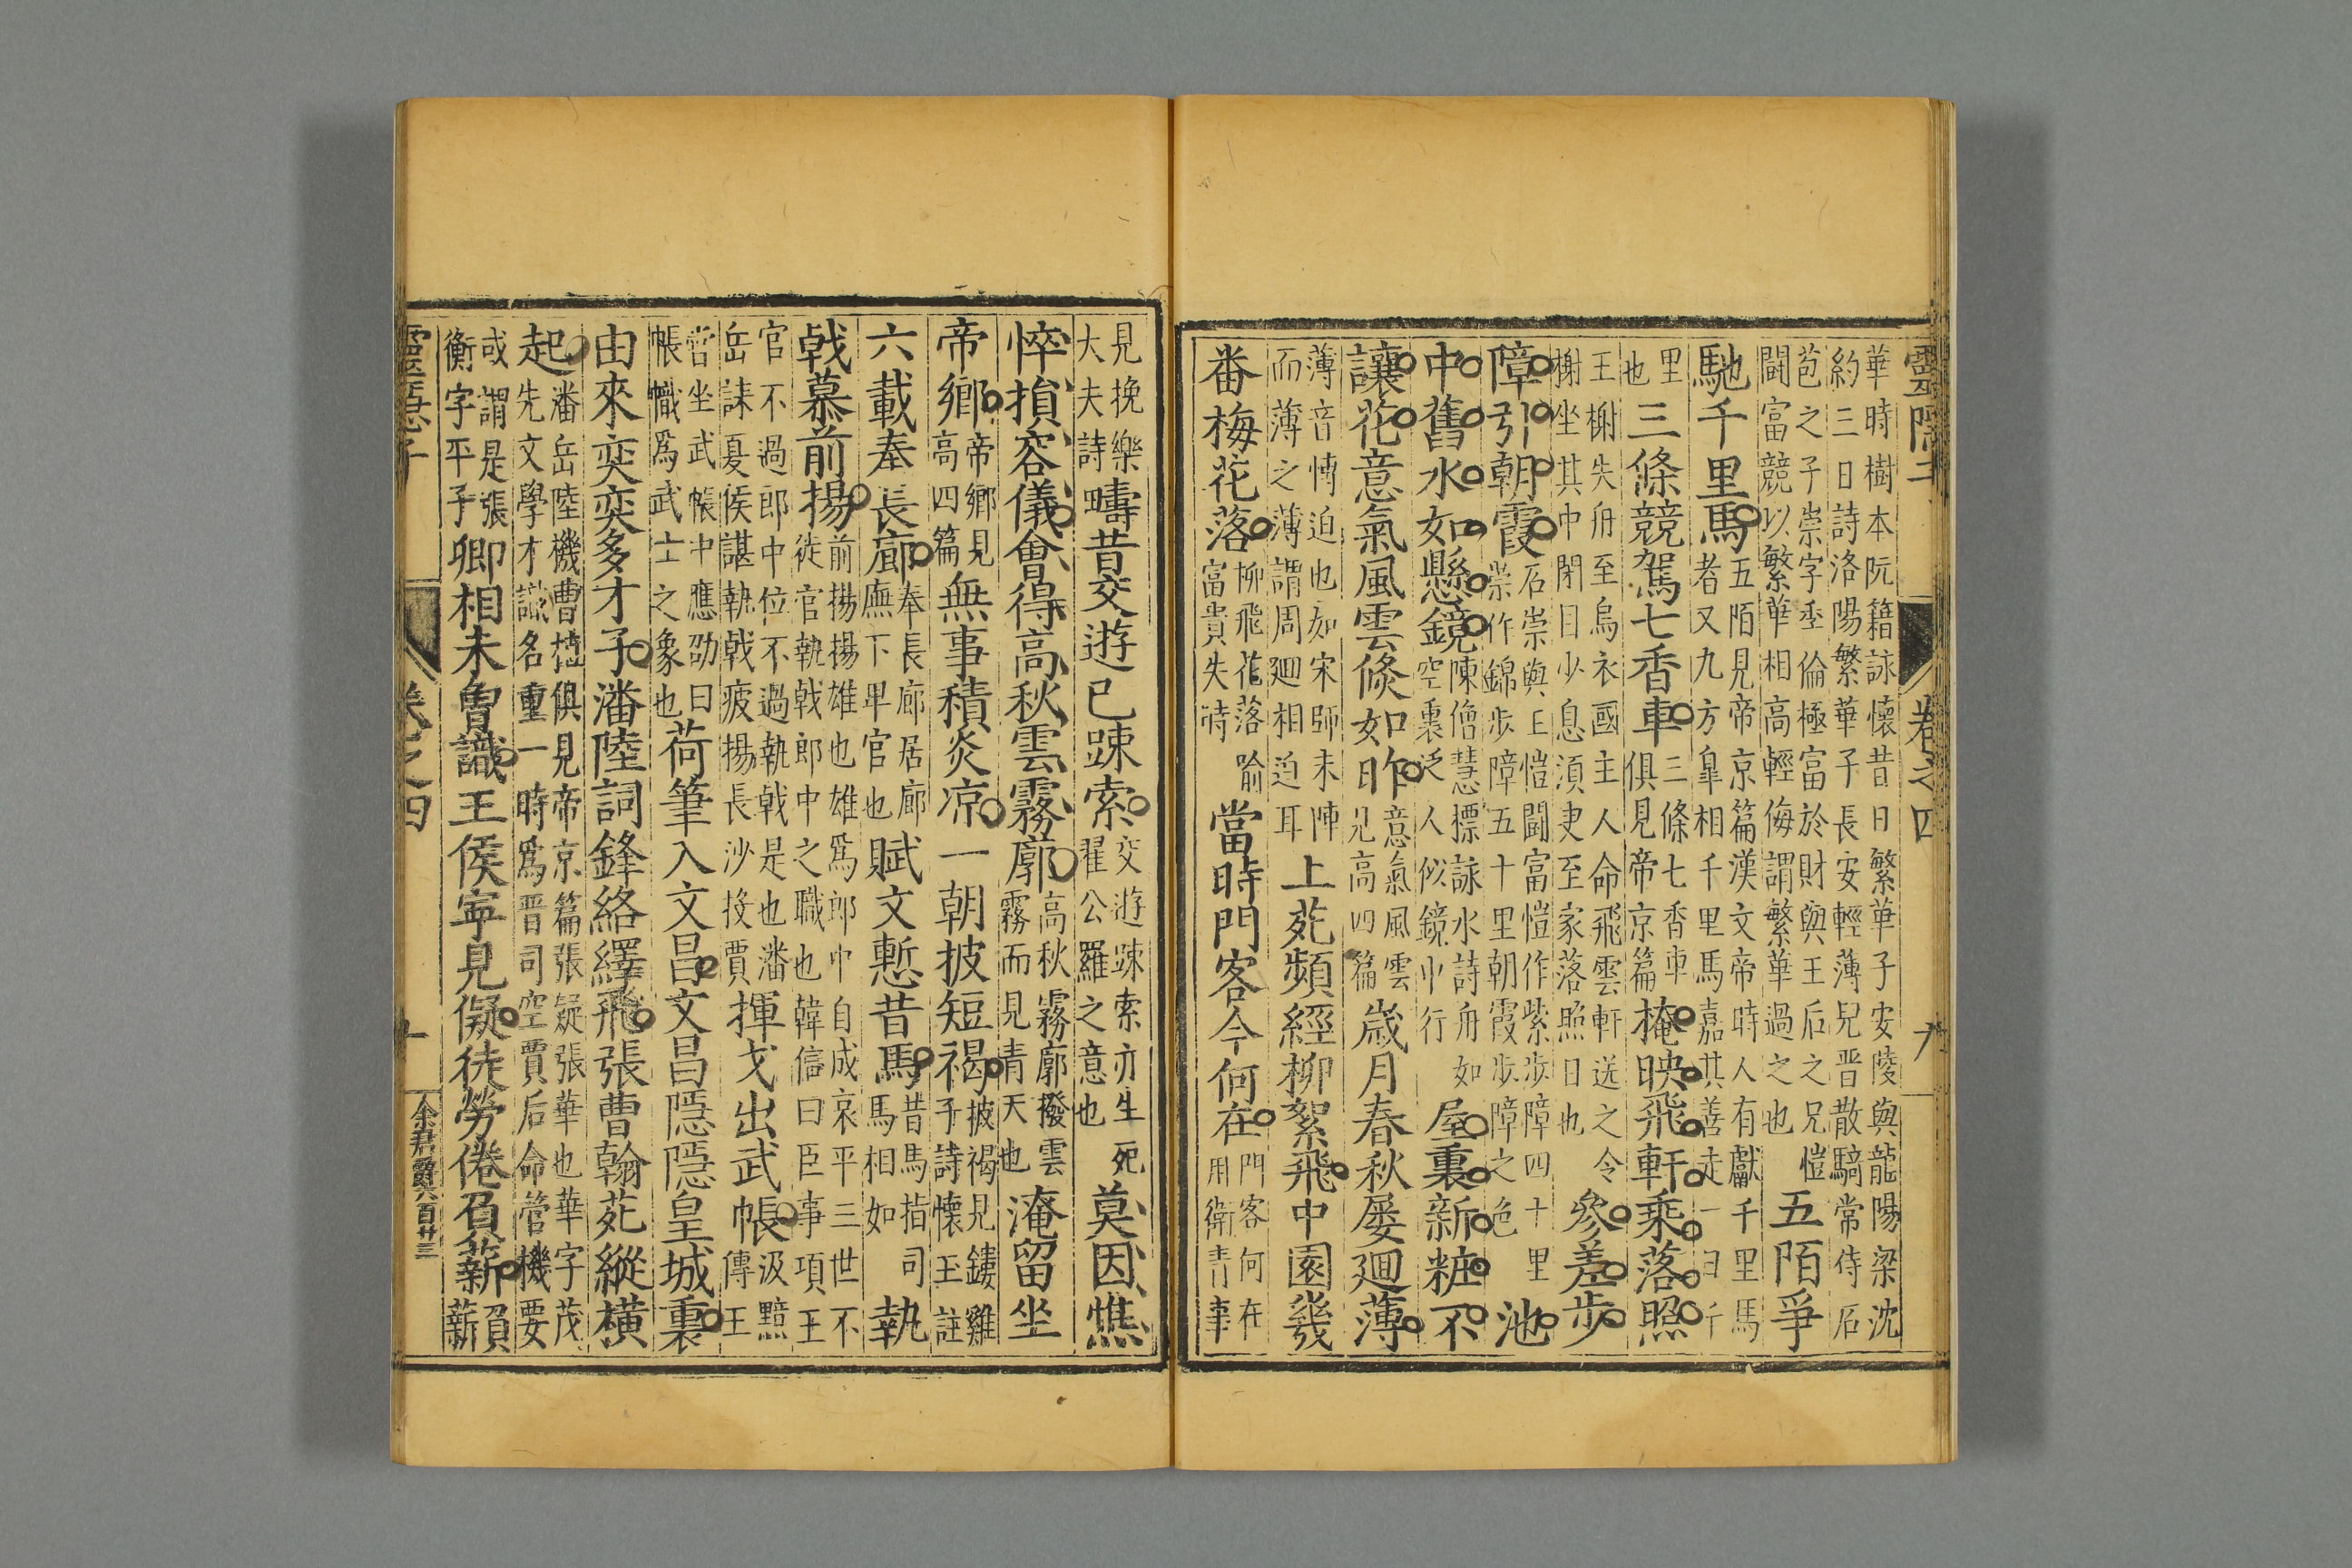 靈隱子 卷之四 九
華時樹本阮籍詠懷昔日繁華子安陵與龍陽梁沈
約三日詩洛陽繁華子長安輕薄兒晋散騎常侍石
苞之子崇字季倫極富於財與王石之兄愷
鬪富競以繁華相高輕侮謂繁華過之也
五陌爭
馳千里馬
五陌見帝京篇漢文帝時人有獻千里馬
者又九方臯相千里馬嘉其善走一日千
里
也
三條競駕七香車
三條七香車
俱見帝京篇
掩映飛軒乘落照
王榭失舟至烏衣國主人命飛雲軒送之令
榭坐其中閉目少息湏臾至家落照日也
參差步
障引朝霞
石崇與王愷鬪富愷作紫步障四十里
崇作錦步障五十里朝霞步障之色
池
中舊水如懸鏡
陳僧慧摽詠水詩舟如
空裏泛人似鏡中行
屋裏新粧不
讓花意氣風雲倐如昨
意氣風雲
見高四篇
歲月春秋屢迴薄
薄音慱迫也如宋師未陣
而薄之薄謂周迴相迫耳
上苑頻經柳絮飛中園幾
番梅花落
柳飛花落喻
富貴失時
當時門客今何在
門客何在
用衛青事
見挽樂
大夫詩
疇昔交遊已踈索
交遊踈索亦生死
翟公羅之意也
莫因憔
悴損容儀會得高秋雲霧廓
高秋霧廓撥雲
霧而見青天也
淹留坐
帝鄉
帝鄉見
高四篇
無事積炎凉一朝披短褐
披褐見鏤雞
子詩懷玉註
六載奉長廊
奉長廊居廊
廡下早官也
賦文慙昔馬
昔馬指司
馬相如
執
戟慕前揚
前揚揚雄也雄爲郎中自成哀平三世不
徙官執戟郎中之職也韓信曰臣事項王
官不過郎中位不過執戟是也潘
岳誄夏侯諶執戟疲揚長沙投賈
揮戈出武帳
汲黯
傳王
嘗坐武帳中應劭曰
帳幟爲武士之象也
荷筆入文昌文昌隱隱皇城裏
由來奕奕多才子潘陸詞鋒絡繹飛張曹翰苑縱橫
起
潘岳陸機曹植俱見帝京篇張疑張華也華字茂
先文學才識名重一時爲晋司空賈后命管機要
或謂是張
衡字平子
卿相未曾識王侯寧見儗徒勞倦負薪
負
薪
靈隱子 卷之四 十 余君爵六百廿三